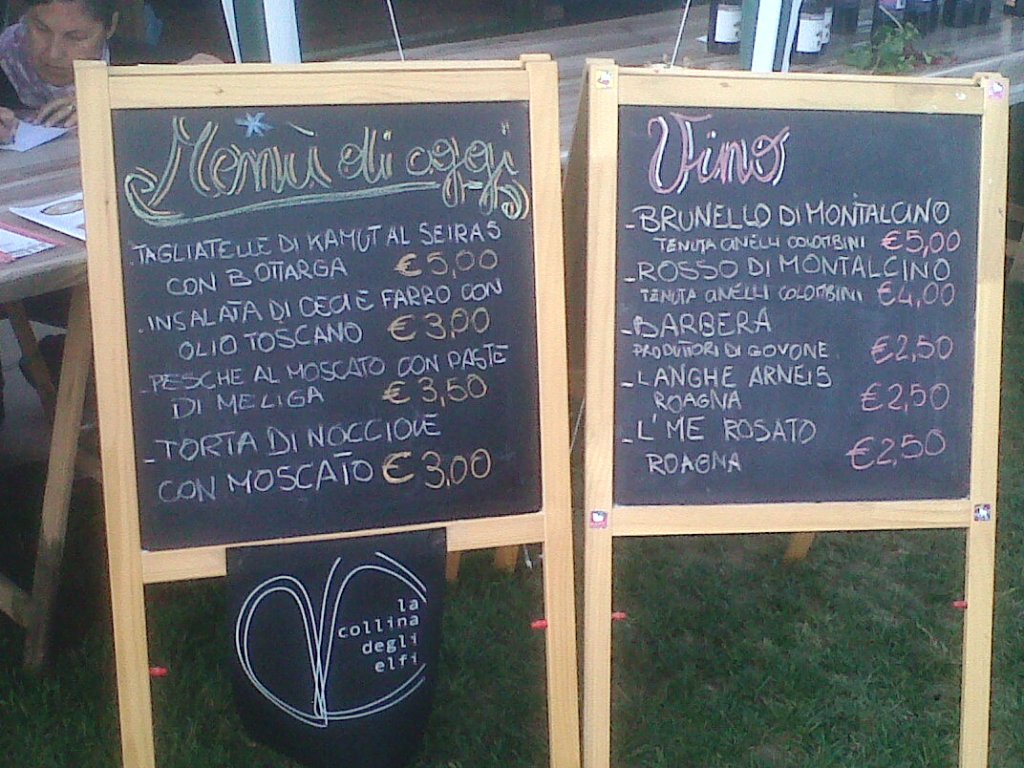 Menù di oggi
- TAGLIATELLE DI KAMUT AL SEIRAS
CON BOTTARGA €5,00
- INSALATA DI CECI E FARRO CON
OLIO TOSCANO €3,00
- PESCHE AL MOSCATO CON PASTE
DI MELIGA €3,50
- TORTA DI NOCCIOLE
CON MOSCATO €3,00
la
collina
degli
elfi
Vino
- BRUNELLO DI MONTALCINO
TENUTA CINELLI COLOMBINI €5,00
- ROSSO DI MONTALCINO
TENUTA CINELLI COLOMBINI €4,00
- BARBERA
PRODUTTORI DI GOVONE €2,50
- LANGHE ARNEIS
ROAGNA €2,50
- L'ME ROSATO
ROAGNA €2,50